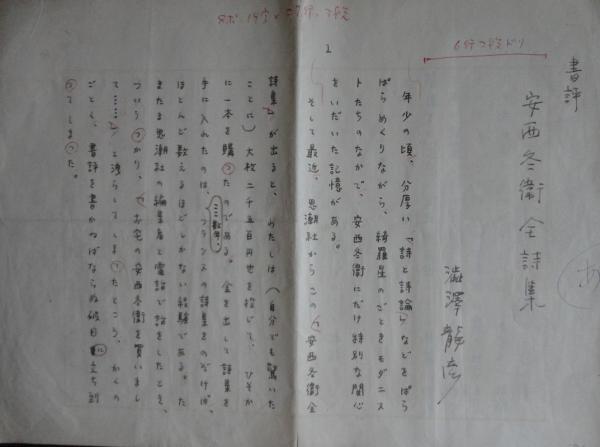 書評
安西冬衛全詩集
澁澤龍彦
6行つめドリ
1
年少の頃、分厚い「詩と詩論」などをぱら
ぱらめくりながら、綺羅星のごときモダニス
トたちのなかで、安西冬衛にだけ特別な関心
をいだいた記憶がある。
そして最近、思潮社からこの「安西冬衛全
詩集」が出ると、わたしは(自分でも驚いた
ことに)大枚二千五百円也を投じて、ひそか
に一本を購ったのである。金を出して詩集を
手に入れたのは、ここ数年、フランスの詩集をのぞけば、
ほとんど数えるほどしかない経験である。た
またま思潮社の編集者と電話で話をしたとき、
ついうっかり、「お宅の安西冬衛を買いまし
て……」と洩らしてしまったところ、かくの
ごとく、書評を書かねばならぬ破目に立ち到
ってしまった。